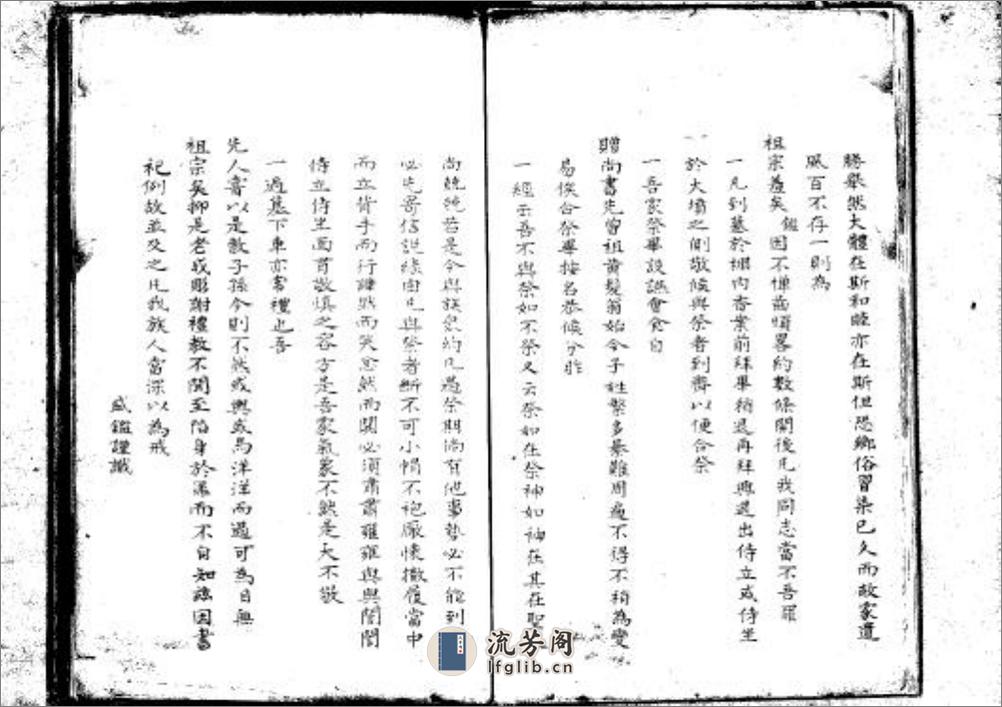 勝舉然大體在斯和睦亦在斯但恐鄉俗習染已久而故家遺
風百不存一則為
祖宗羞矣 鑑因不憚齒煩畧約數條闊後凡我同志當不吾罪
一凡到墓於棚內香案前拜畢稍退再拜興退出侍立或侍坐
於大墳之側敬候與祭者到齊以便合祭
一吾家祭畢設讌會食自
贈尚書先曾祖黃髮翁始今子姓繁多綦難周遍不得不稍為變
易俟合祭畢按名恭候分胙
一經云吾不與祭如不祭又云祭如在祭神如神在其在聖
尚兢兢若是今與族衆約凡遇祭期倘有他事勢必不能到
必先寄信説緣由凡與祭者斷不可小帽不袍厰懷撒履當中
而立背手而行譁然而笑忿然而鬨必須肅肅雍雍與與誾誾
侍立侍坐面有敬慎之容方是吾家氣象不然是大不敬
一過墓下車亦常禮也吾
先人嘗以是教子孫今則不然或輿或馬洋洋而過可為目無
祖宗矣抑是老成凋謝禮教不聞至陷身於罪而不自知茲因書
祀例故並及之凡我族人當深以為戒
盛鑑謹識
流芳阁
lfglib.cn